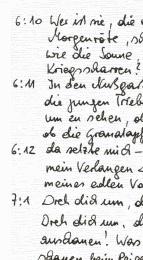 6:10 Wer ist sie, die
Morgenröte, s
wie die Sonne
Kriegsscharen?
6:11 In den Nußgar
die jungen Trieb
um zu sehen, o
ob die Granatapf
6:12 da setzte mich –
mein Verlangen
meines edlen Vo
7:1 Dreh dich um, d
Dreh dich um, d
anschauen! Was